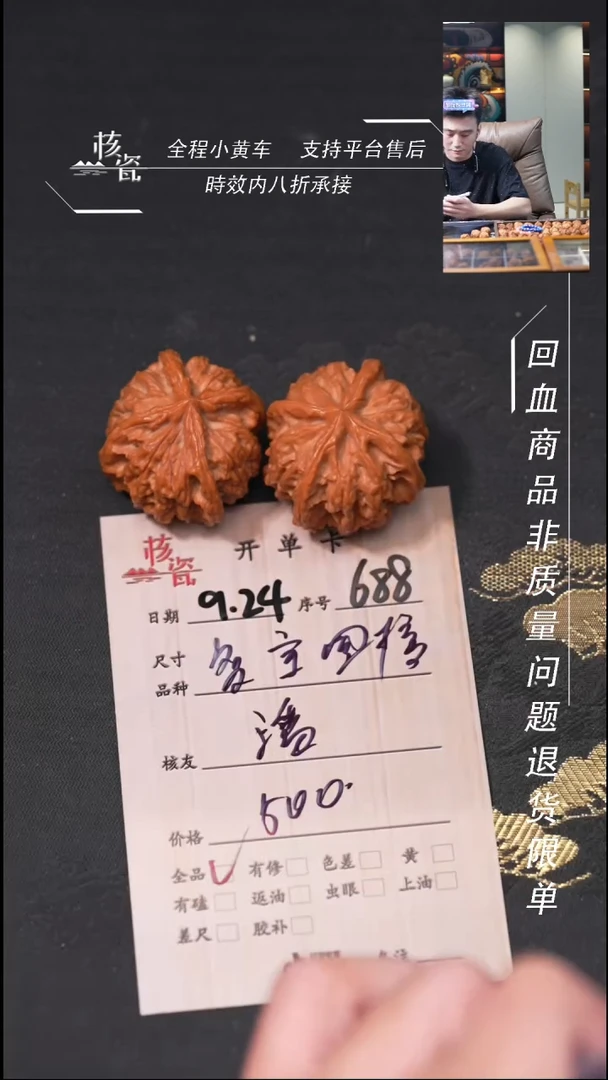 核瓷
全程小黄车 支持平台售后
時效内八折承接
回血商品非质量问题退货限单
核瓷 开单卡
日期 9.24 序号 688
尺寸
品种
核友 潘
价格 500.
全品 有修 色差 黄
有磕 返油 虫眼 上油
差尺 胶补